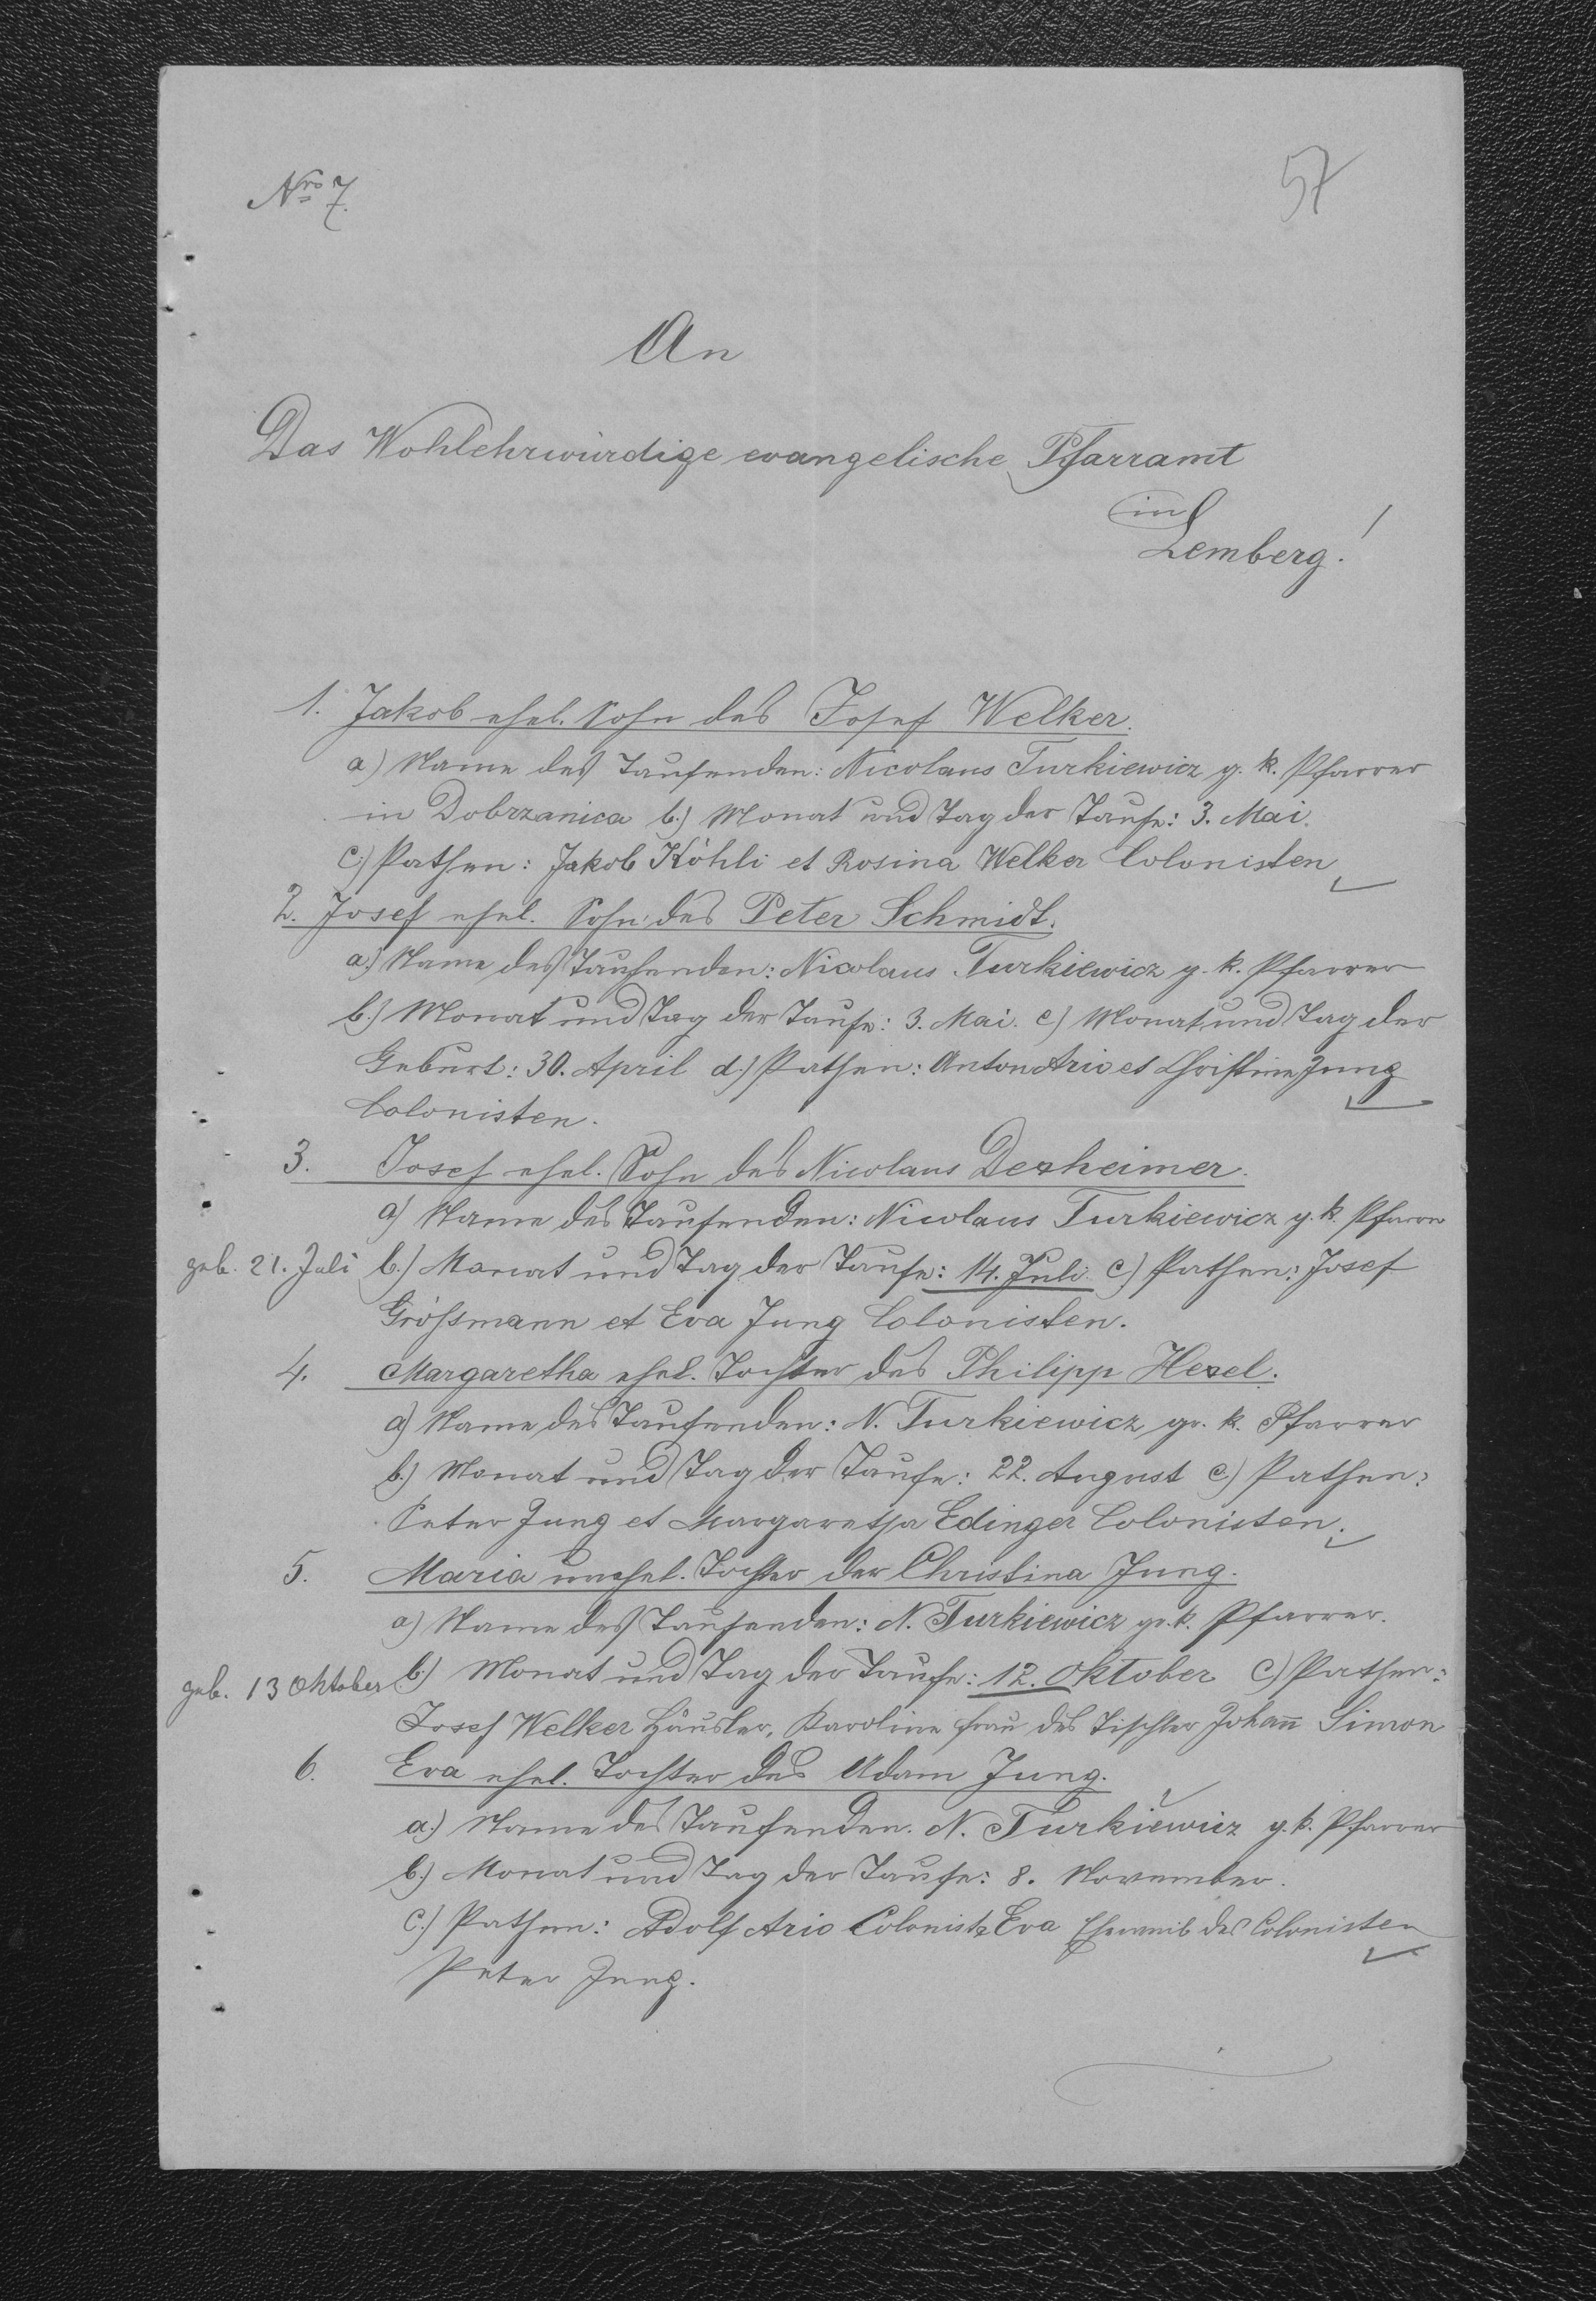 Nro 7.
57
An
Das Wohlehrwürdige evangelische Pfarramt
in
Lemberg!
1. Jakob ehel. Sohn des Josef Welker.
a) Name des Taufenden: Nicolaus Turkiewicz g. k. Pfarrer
in Dobrzanica b.) Monat und Tag der Taufe: 3. Mai.
c) Pathen: Jakob Köhli et Rosina Welker Colonisten
2. Josef ehel. Sohn des Peter Schmidt.
a.) Name des Taufenden: Nicolaus Turkiewicz g. k. Pfarrer
b.) Monat und Tag der Taufe: 3. Mai. c) Monat und Tag der
Geburt: 30. April d.) Pathen: Anton Ario et Christine Jung
Colonisten.
3. Josef ehel. Sohn des Nicolaus Dexheimer.
a) Name des Taufenden: Nicolaus Turkiewicz g. k. Pfarrer
geb. 21. Juli b.) Monat und Tag der Taufe: 14. Juli c) Pathen: Josef
Größmann et Eva Jung Colonisten.
4. Margaretha ehel. Tochter des Philipp Hexel.
a) Name des Taufenden: N. Turkiewicz gr. k. Pfarrer
b.) Monat und Tag der Taufe: 22. August c.) Pathen:
Peter Jung et Margaretha Edinger Colonisten.
5. Maria unehel. Tochter der Christina Jung.
a) Name des Taufenden: N. Turkiewicz gr. k. Pfarrer.
geb. 13 Oktober b.) Monat und Tag der Taufe: 12. Oktober c) Pathen:
Josef Welker Häusler, Karoline Frau des Tischler Johann Simon
6. Eva ehel. Tochter des Adam Jung.
a.) Name des Taufenden. N. Turkiewicz g. k. Pfarrer
b.) Monat und Tag der Taufe: 8. November.
c.) Pathen: Adolf Ario Colonist, Eva Eheweib des Colonisten
Peter Jung.